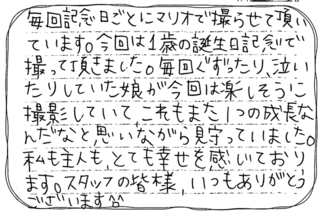 毎回記念日ごとにマリオで撮らせて頂い
ています。今回は1歳の誕生日記念で
撮って頂きました。毎回ぐずったり、泣い
たりしていた娘が今回は楽しそうに
撮影していて、これもまた1つの成長な
んだなと思いながら見守っていました。
私も主人も、とても幸せを感じており
ます。スタッフの皆様、いつもありがとう
ございます^^